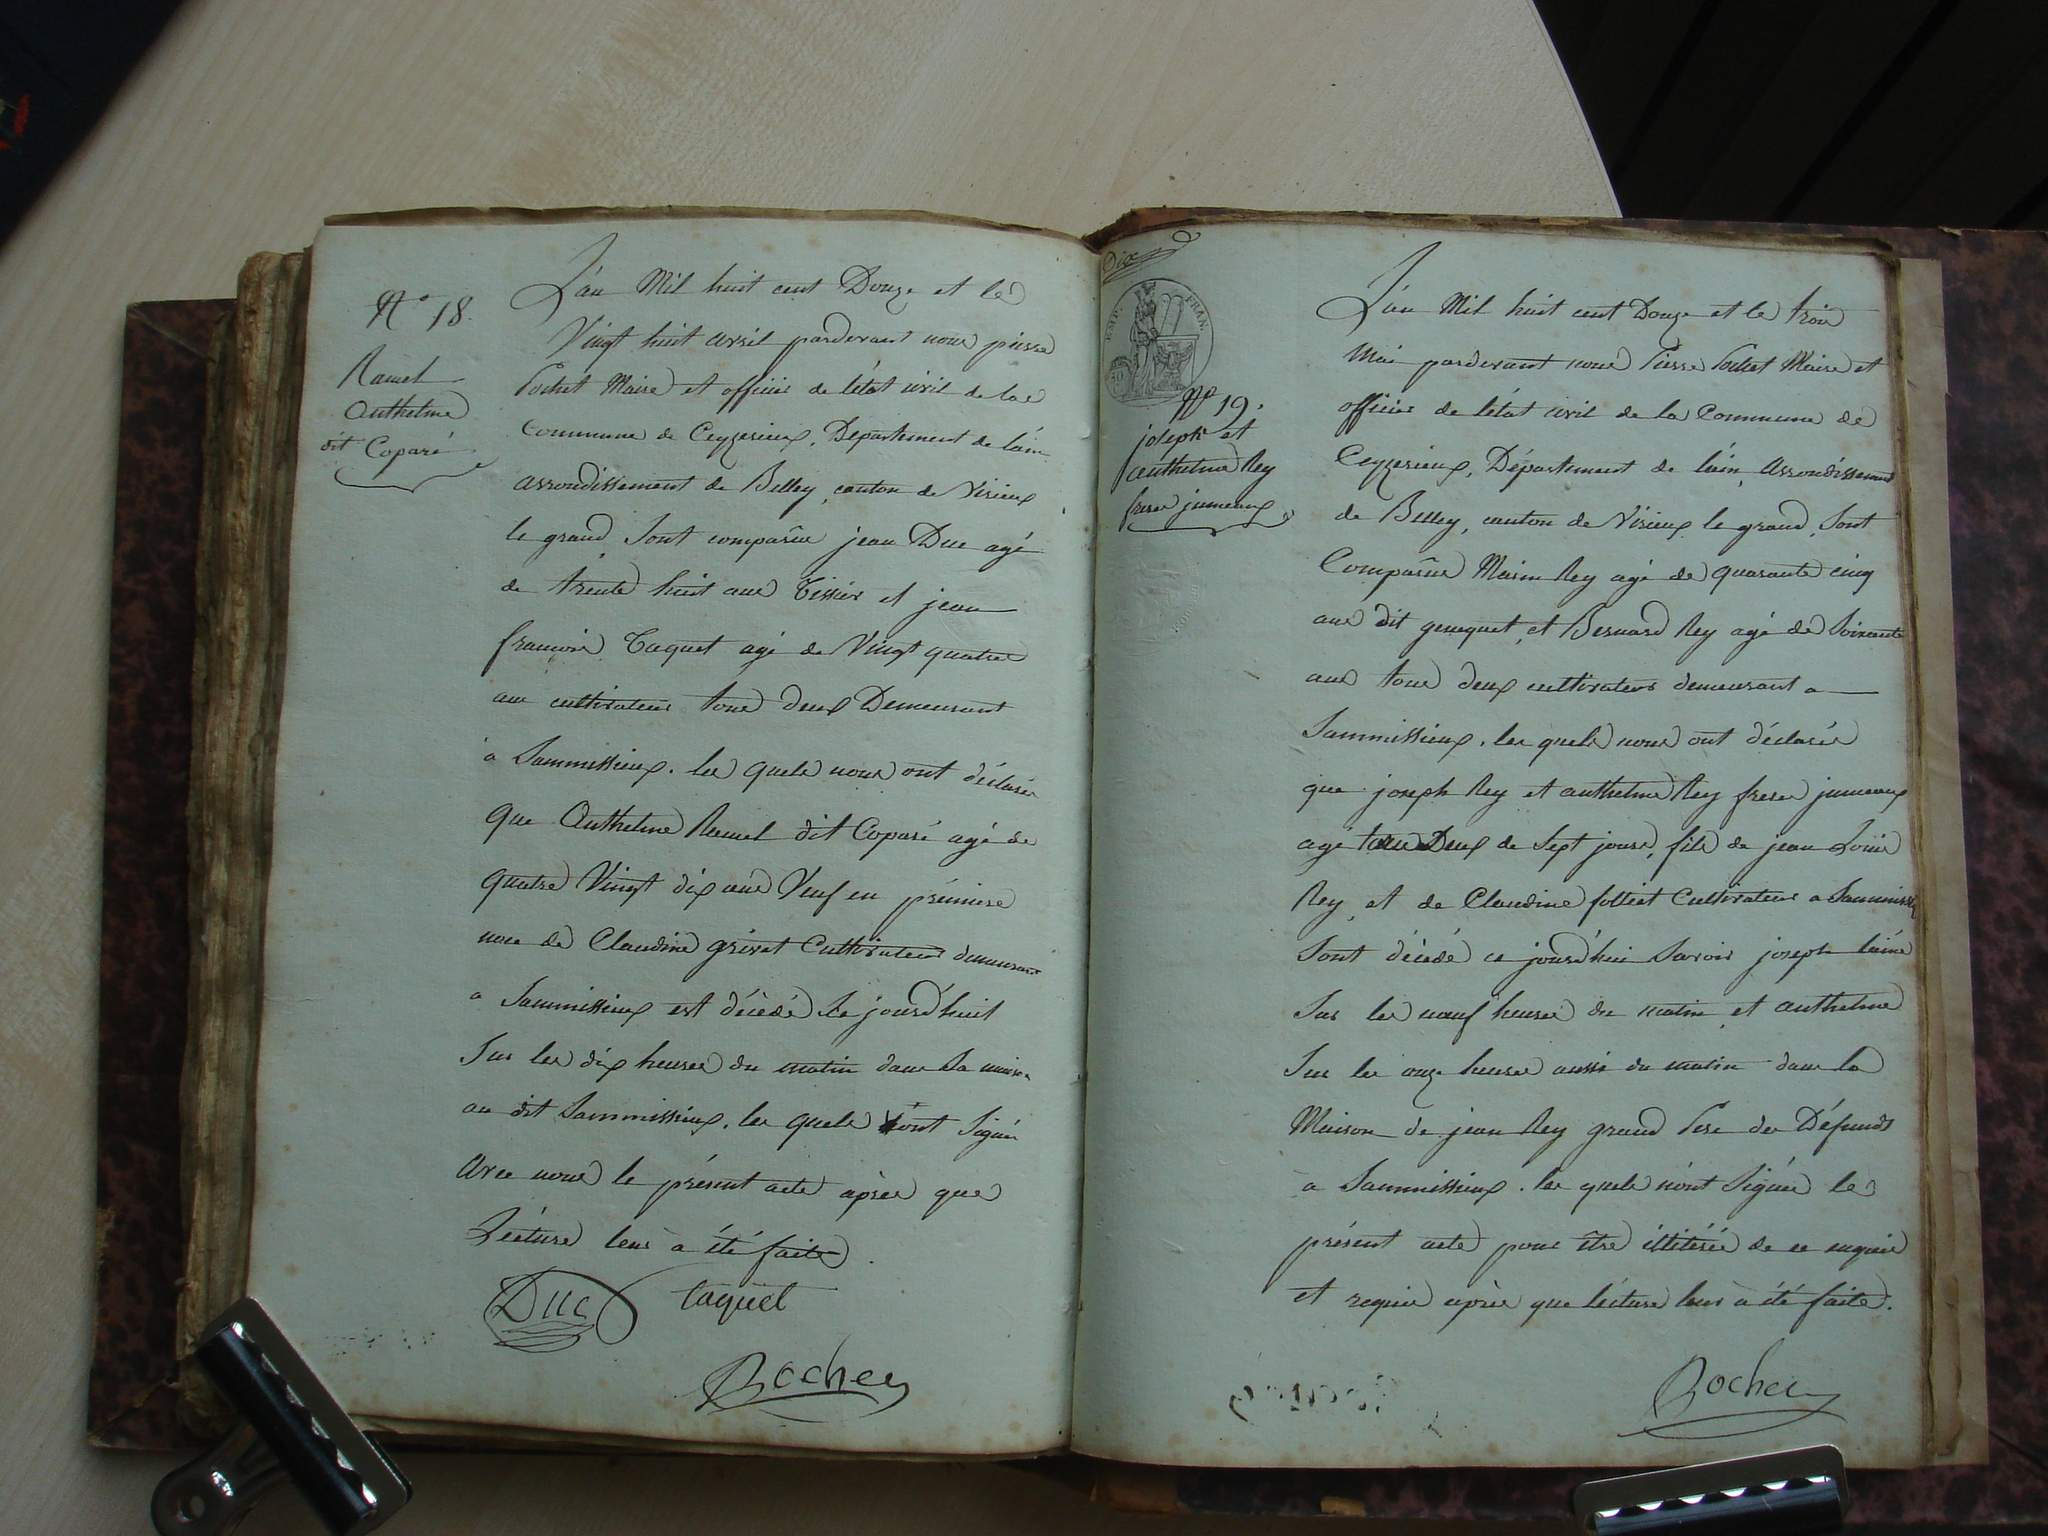 N° 18.
Ramel
Anthelme
dit Coparé
L'an Mil huit cent Douze et le
Vingt huit avril pardevant nous pierre
Pochet Maire et officier de l'état civil de la
Commune de Ceyzerieux, Département de l'ain
arrondissement de Belley, canton de Virieux
le grand, Sont comparûs jean Duc agé
de trente huit ans Tissier et jean
francois Taquet agé de Vingt quatre
ans cultivateur tous deux Demeurant
a Sammissieux. les quels nous ont déclarés
que Anthelme Ramel dit Coparé agé de
quatre Vingt dix ans Veuf en prémiere
noce de Claudine grivet Cultivateur demeurant
a Sammissieux est décèdé Ce jourd'huit
Sur les dix heures du matin dans Sa maison
au dit Sammissieux. les quels ont Signés
Avec nous le présent acte après que
Lécture leur à été faite.
Duc taquet
Pochet
Dix
EMP. FRAN.
N° 19.
joseph et
anthelme Rey
freres jumeaux
L'an Mil huit cent Douze et le trois
Mai pardevant nous Pierre Pochet Maire et
officier de l'état civil de la Commune de
Ceyzerieux, Département de l'ain, Arrondissement
de Belley, canton de Virieux le grand, Sont
Comparûs Marin Rey agé de quarante cinq
ans dit genequet, et Bernard Rey agé de Soixante
ans tous deux cultivateurs demeurant a
Sammissieux. les quels nous ont déclarés
que joseph Rey et anthelme Rey freres jumeaux
agé tous Deux de Sept jours, fils de jean Louis
Rey, et de Claudine folliet Cultivateur a Sammissieux
Sont décédé ce jourd'hui Savoir joseph l'ainé
Sur les neuf heures du matin, et anthelme
Sur les onze heures aussi du matin dans la
Maison de jean Rey grand Pere des Défunds
à Sammissieux. les quels n'ont Signés le
présent acte pour être illitérés de ce enquis
et requis après que lécture leur à été faite.
Pochet